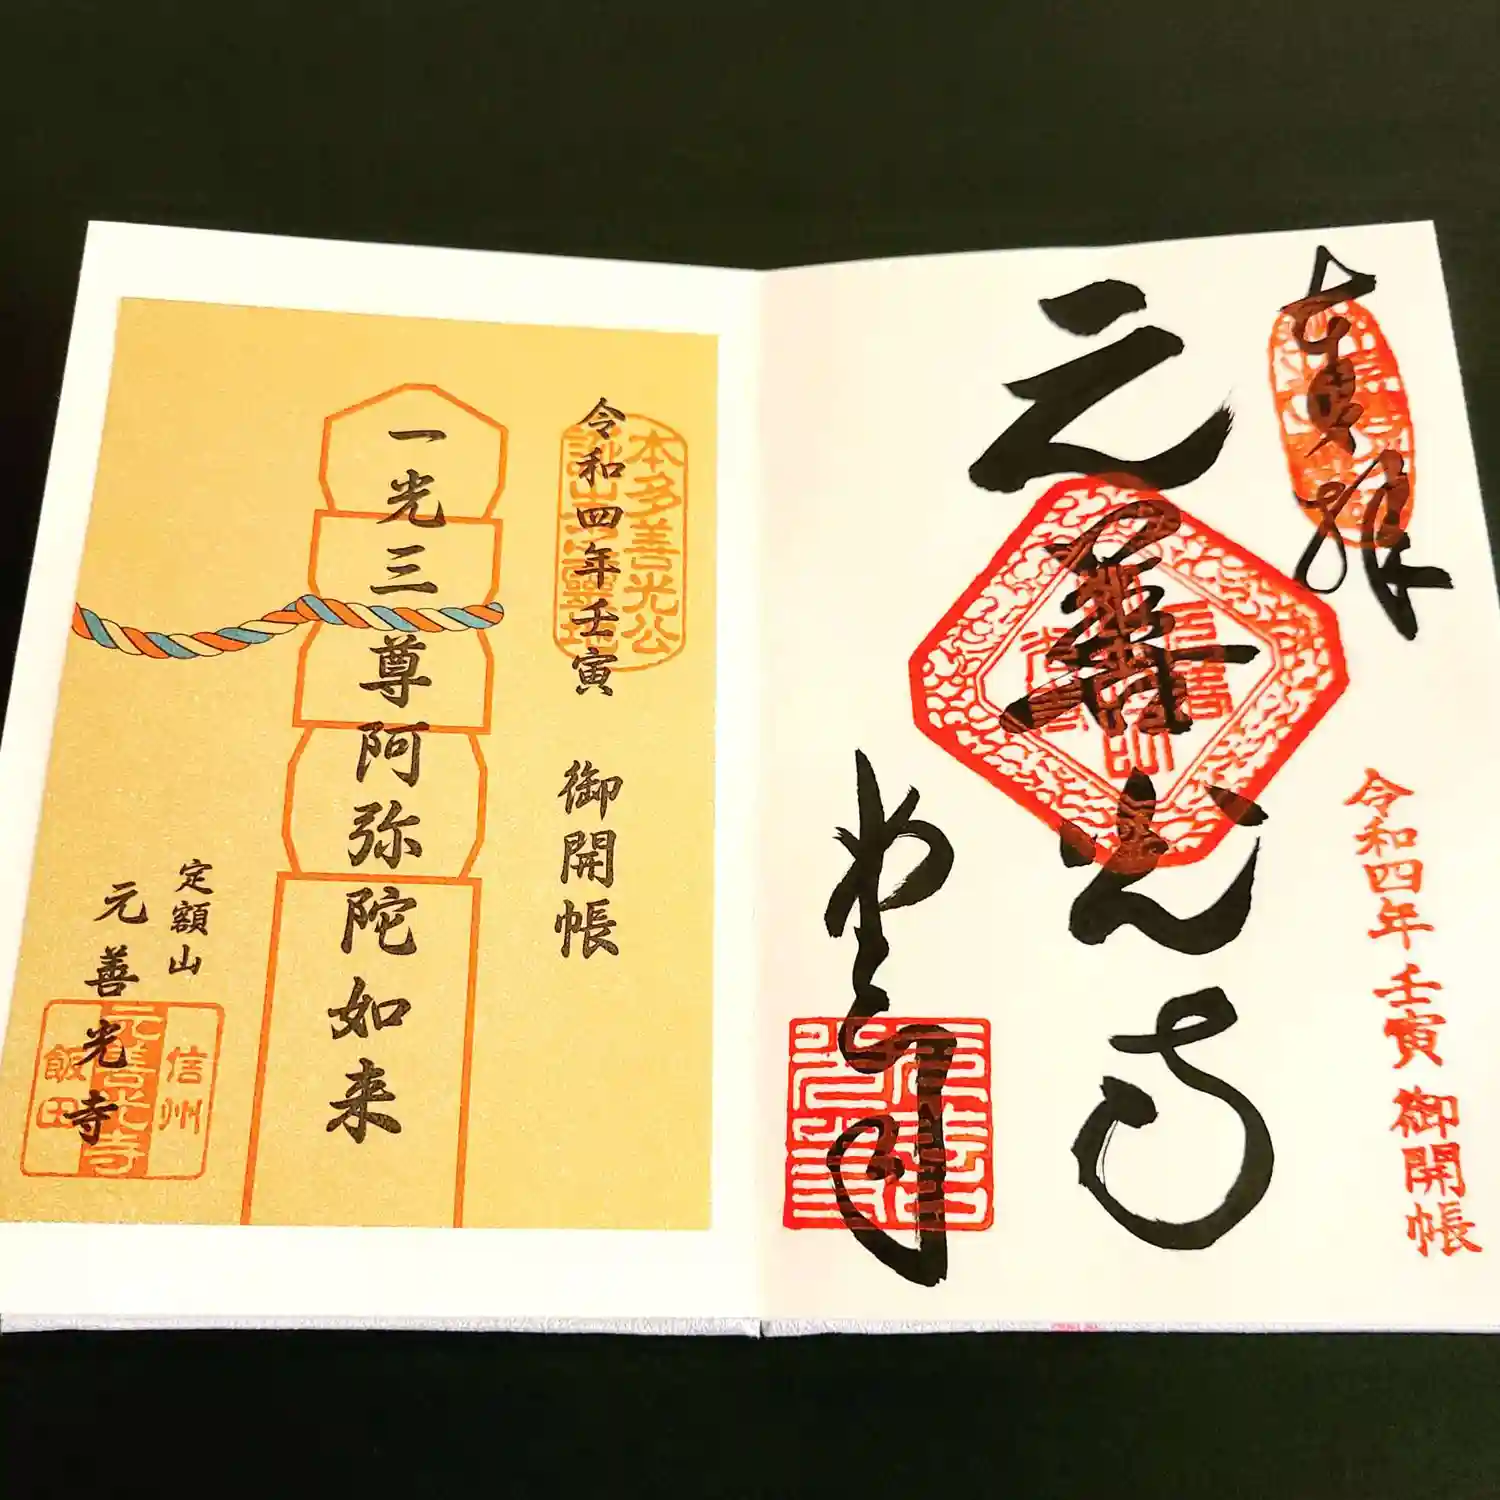 奉拝
令和四年壬寅 御開帳
元善光寺
本多善光公
令和四年壬寅 御開帳
一光三尊阿弥陀如来
定額山
元善光寺
信州
元善光寺
飯田